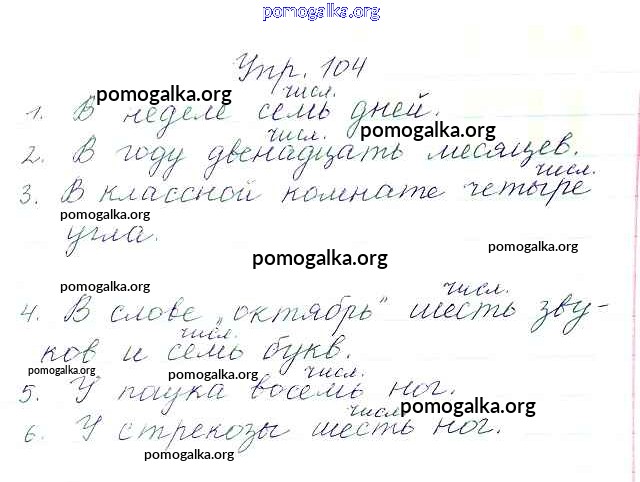 pomogalka.org
Упр. 104
pomogalka.org числ.
1. В неделе семь дней.
числ. pomogalka.org
2. В году двенадцать месяцев.
числ.
3. В классной комнате четыре
pomogalka.org
угла.
pomogalka.org
pomogalka.org
pomogalka.org числ.
4. В слове „октябрь" шесть зву-
числ.
ков и семь букв.
pomogalka.org pomogalka.org числ.
5. У паука восемь ног.
числ. pomogalka.org
6. У стрекозы шесть ног.
pomogalka.org